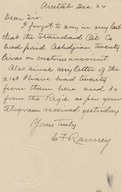 Arretas Dec 24
Dear Sir
I forgot to say in my last
that the Standard Oil Co
had paid Ashdjian twenty
liras on customs account.
Also since my letter of the
21st I have had twenty
from them here and 50
from the Regie as per your
telegram received yesterday
Yours truly
E F Ranney